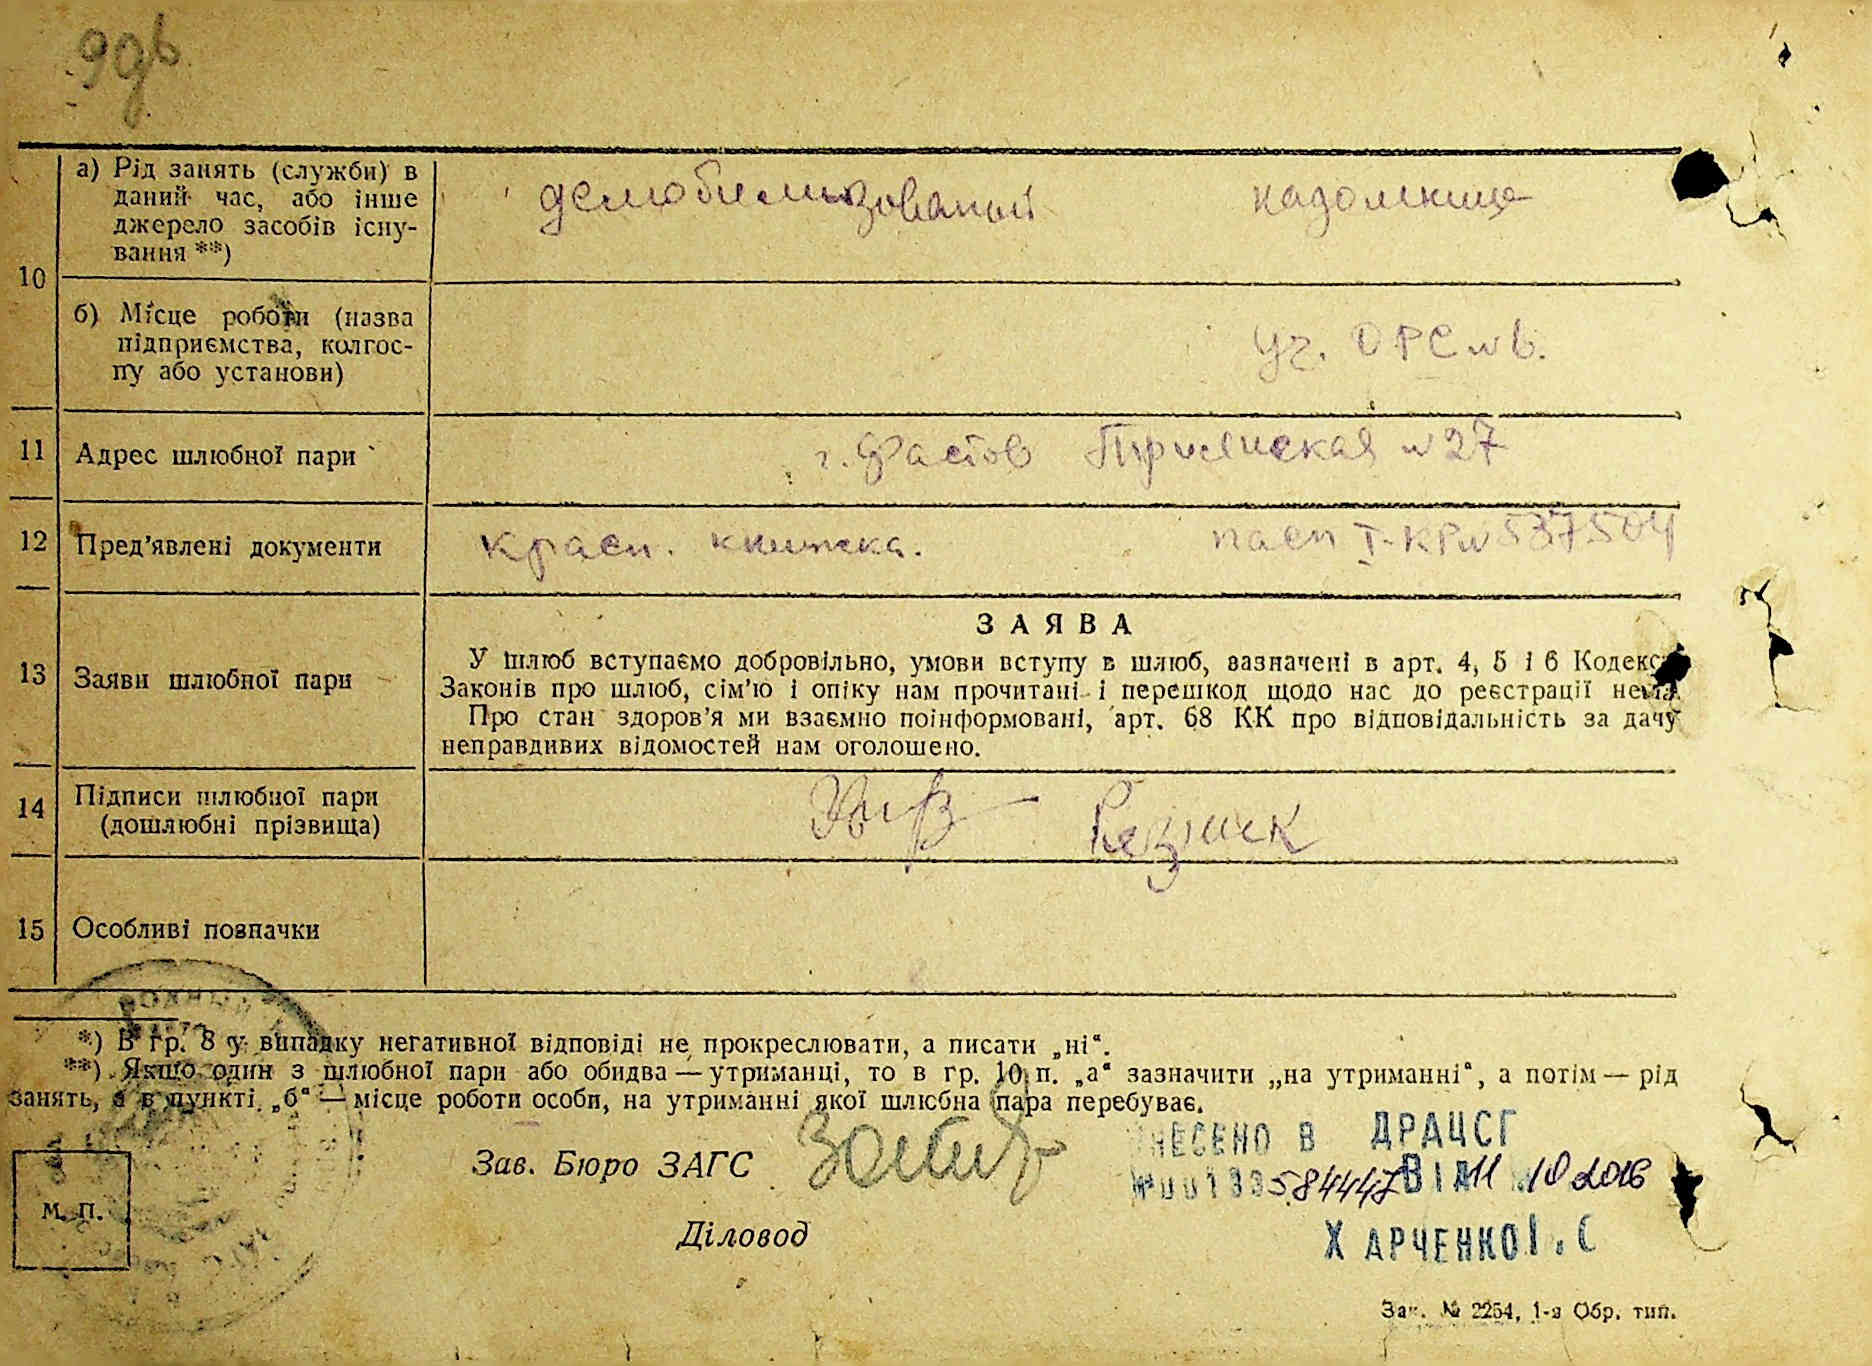 а) Рід занять (служби) в
даний час, або інше
джерело засобів існу-
вання **)
демобилизованый надомница
10
б) Місце роботи (назва
підприємства, колгос-
пу або установи)
уч. ОРС
11 Адрес шлюбної пари
г. Фастов №27
12 Пред'явлені документи
красн. книжка. пасп I-КР№537504
ЗАЯВА
13 Заяви шлюбної пари
У шлюб вступаємо добровільно, умови вступу в шлюб, зазначені в арт. 4, 5 і 6 Кодекса
Законів про шлюб, сім'ю і опіку нам прочитані і перешкод щодо нас до реєстрації нема.
Про стан здоров'я ми взаємно поінформовані, арт. 68 КК про відповідальність за дачу
неправдивих відомостей нам оголошено.
14 Підписи шлюбної пари
(дошлюбні прізвища)
Резник
15 Особливі позначки
*) В гр. 8 у випадку негативної відповіді не прокреслювати, а писати „ні“.
**) Якщо один з шлюбної пари або обидва — утриманці, то в гр. 10 п. „а“ зазначити „на утриманні“, а потім — рід
занять, а в пункті „б“ — місце роботи особи, на утриманні якої шлюбна пара перебуває.
ВНЕСЕНО В ДРАЦСГ
Зав. Бюро ЗАГС
№00133584447 ВІД 11 10 2016
М. П.
Діловод
ХАРЧЕНКО І. С
Зак. № 2254, 1-а Обр. тип.